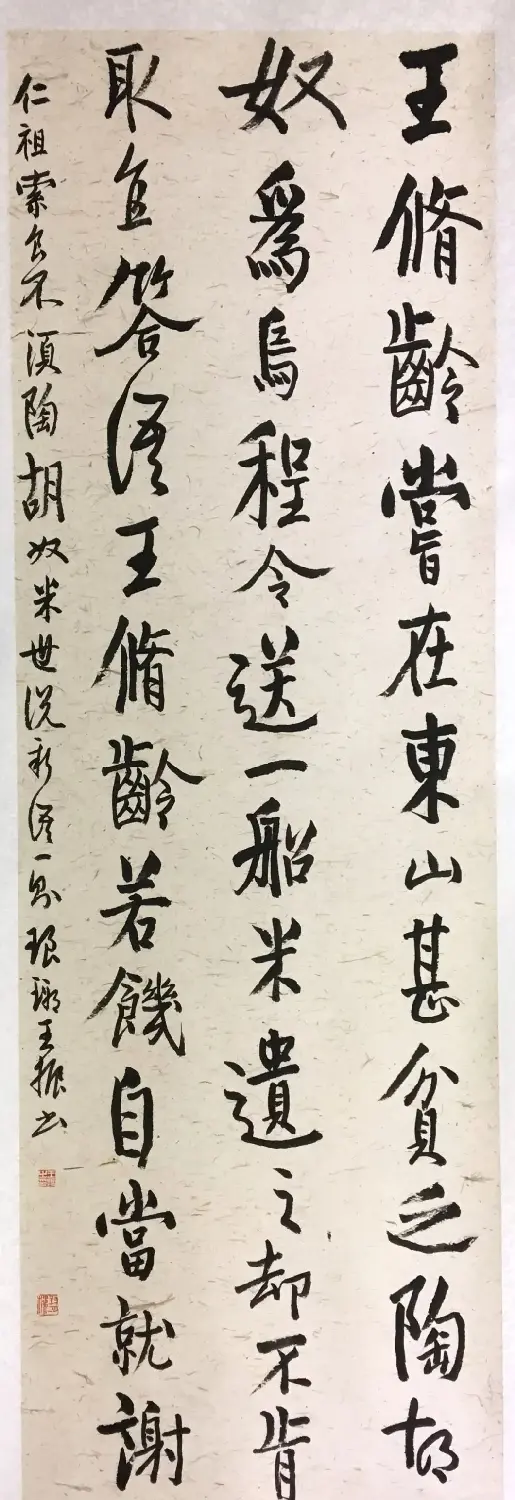 王脩齡嘗在東山甚貧乏陶胡
奴爲烏程令送一船米遺之却不肯
取直答語王脩齡若饑自當就謝
仁祖索食不須陶胡奴米世说新语一则琅琊王振书